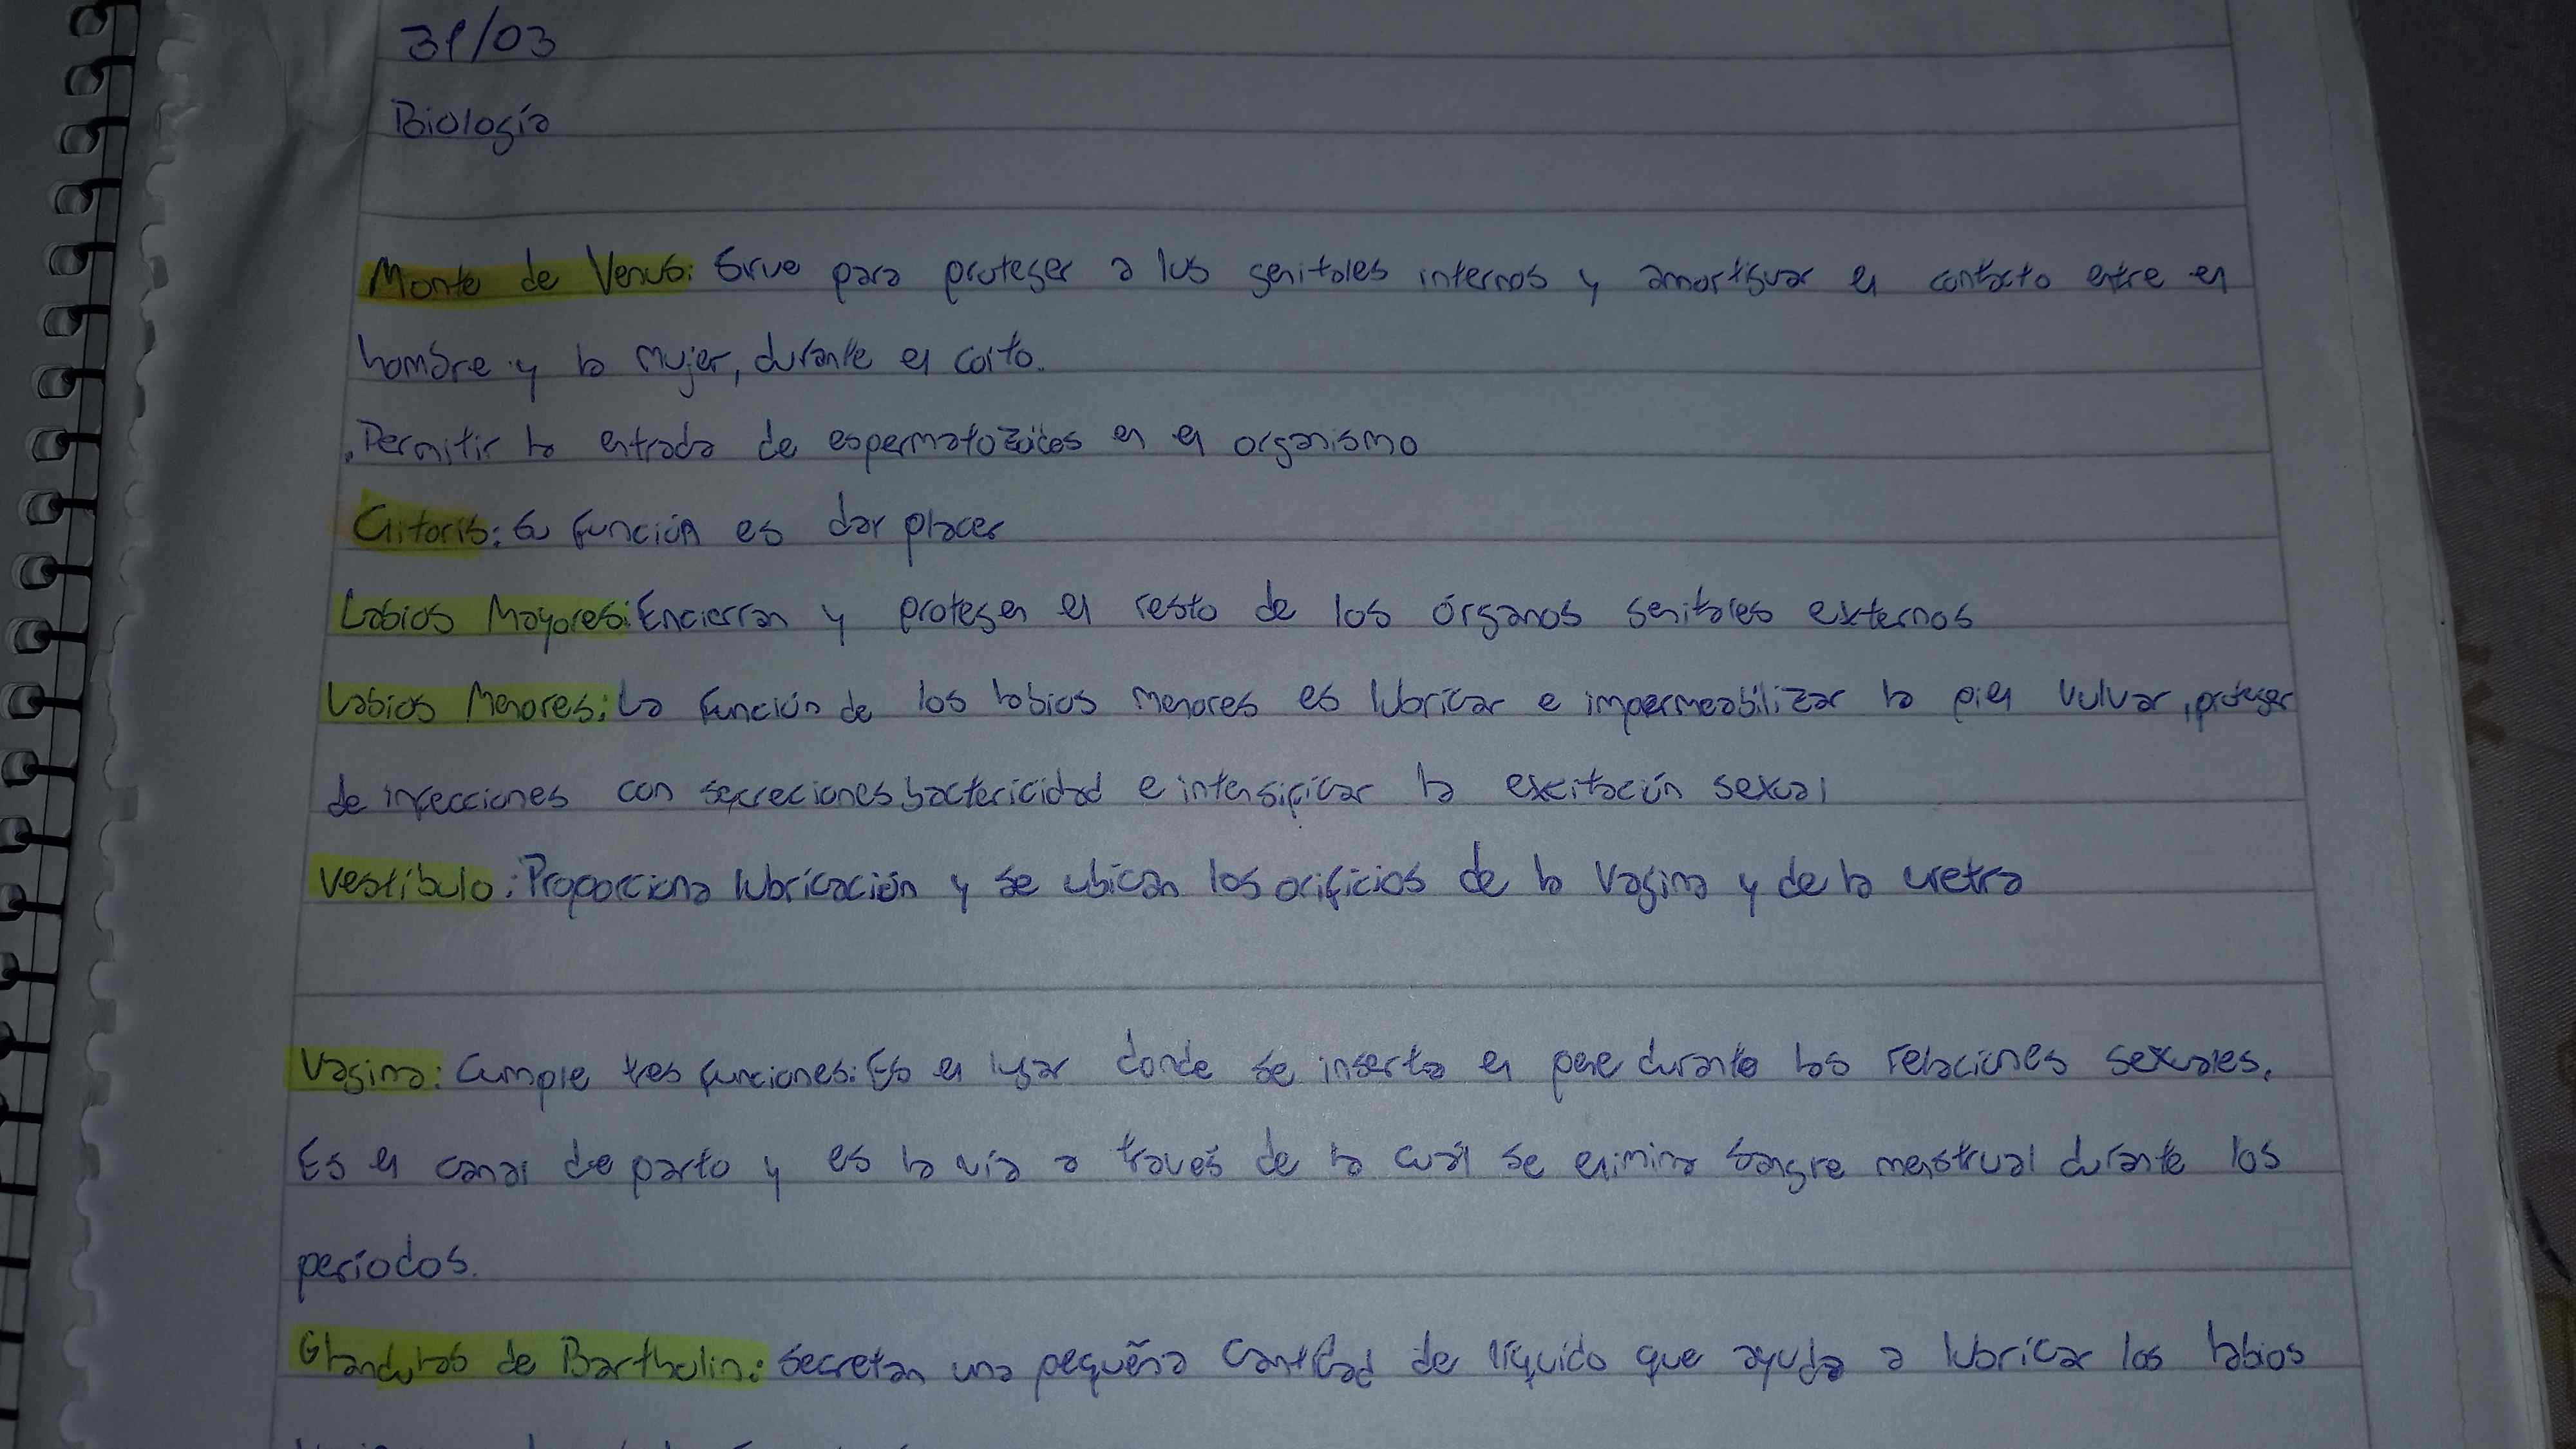 31/03
Biología
Monte de Venus: Sirve para proteger a los genitales internos y amortiguar el contacto entre el
hombre y la mujer, durante el coito.
.Permitir la entrada de espermatozoides en el organismo
Clitoris: Su función es dar placer
Labios Mayores: Encierran y protegen el resto de los órganos genitales externos
Labios Menores: La función de los labios menores es lubricar e impermeabilizar la piel vulvar, proteger
de infecciones con secreciones bactericidad e intensificar la excitación sexual
Vestíbulo: Proporciona lubricación y se ubican los orificios de la vagina y de la uretra
Vagina: Cumple tres funciones: Es el lugar donde se inserta el pene durante las relaciones sexuales.
Es el canal de parto y es la vía a través de la cuál se elimina sangre menstrual durante los
períodos.
Glandulas de Bartholin: Secretan una pequeña cantidad de líquido que ayuda a lubricar los labios